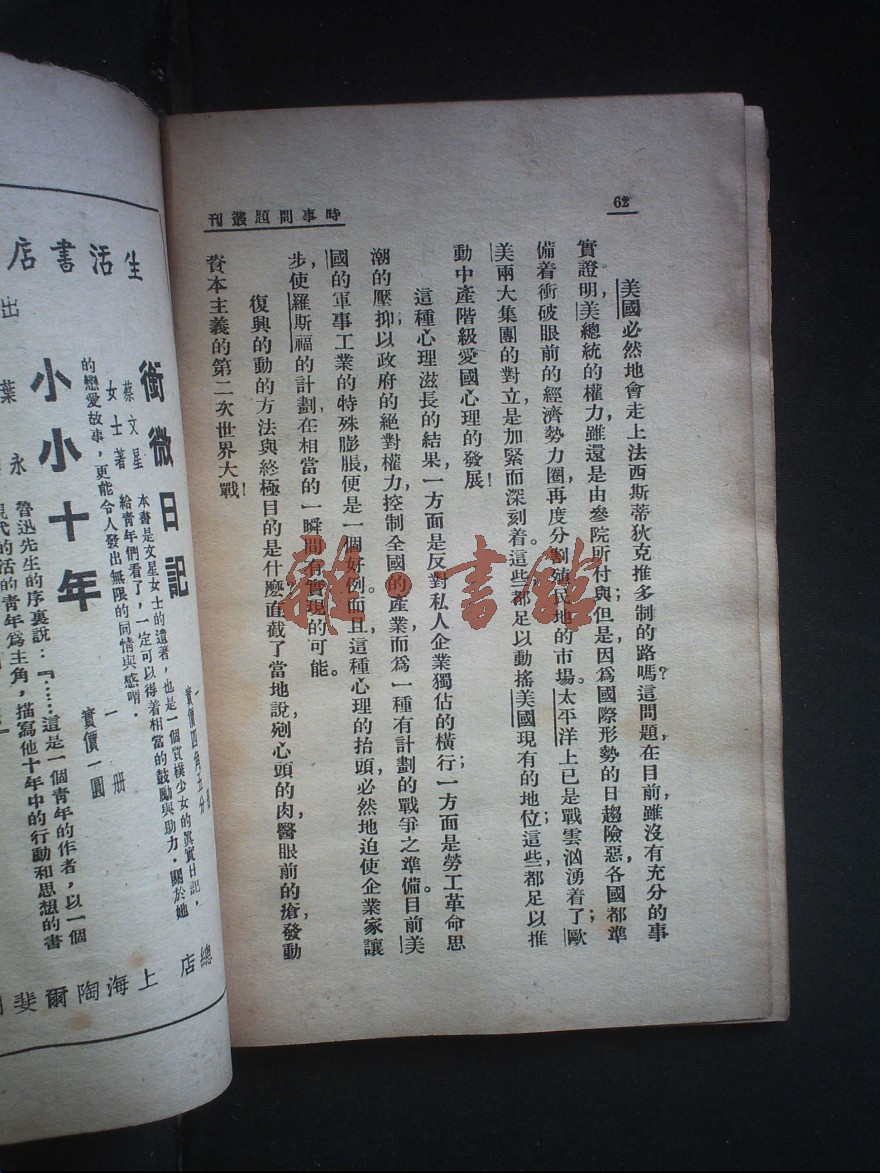 62
時事問題叢刊
美國必然地會走上法西斯蒂狄克推多制的路嗎？這問題，在目前，雖沒有充分的事
實證明，美總統的權力，雖還是由參院所付與；但是，因爲國際形勢的日趨險惡，各國都準
備着衝破眼前的經濟勢力圈，再度分割殖民地的市場。太平洋上已是戰雲洶湧着了；歐
美兩大集團的對立，是加緊而深刻着。這些，都足以動搖美國現有的地位，這些都足以推
動中產階級愛國心理的發展！
這種心理滋長的結果，一方面是反對私人企業獨佔的橫行；一方面是勞工革命思
潮的壓抑；以政府的絕對權力，控制全國的產業，而爲一種有計劃的戰爭之準備。目前美
國的軍事工業的特殊膨脹，便是一個好例。而且，這種心理的抬頭，必然地迫使企業家讓
步，使羅斯福的計劃，在相當的一瞬間，有實現的可能。
復興的動的方法與終極目的是什麼？直截了當地說：剜心頭的肉，醫眼前的瘡，發動
資本主義的第二次世界大戰！
生活書店
出
銜微日記
蔡文星
女士著
實價四角五分
本書是文星女士的遺著，也是一個質樸少女的眞實日記，
給青年們看了，一定可以得着相當的鼓勵與助力。關於她
的戀愛故事，更能令人發出無限的同情與感喟。
小小十年
葉永
一册
實價一圓
魯迅先生的序裏說：『……這是一個青年的作者，以一個
現代的活的青年爲主角，描寫他十年中的行動和思想的書
總店 上海陶爾斐
雜·書館